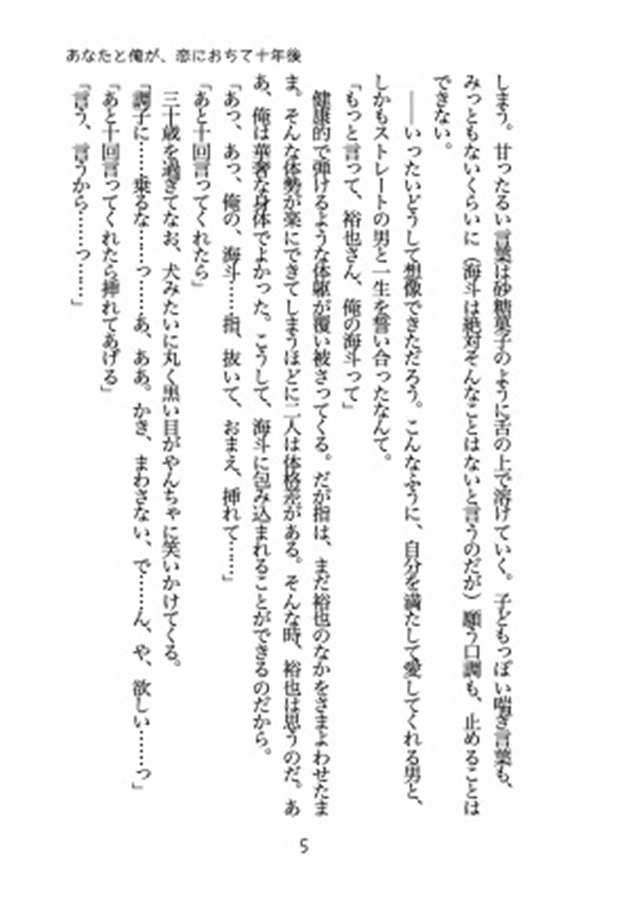 あなたと俺が、恋におちて十年後
しまう。甘ったるい言葉は砂糖菓子のように舌の上で溶けていく。子どもっぽい喘ぎ言葉も、
みっともないくらいに（海斗は絶対そんなことはないと言うのだが）願う口調も、止めることは
できない。
――いったいどうして想像できただろう。こんなふうに、自分を満たして愛してくれる男と、
しかもストレートの男と一生を誓い合ったなんて。
「もっと言って、裕也さん、俺の海斗って」
健康的で弾けるような体躯が覆い被さってくる。だが指は、まだ裕也のなかをさまよわせたま
ま。そんな体勢が楽にできてしまうほどに二人は体格差がある。そんな時、裕也は思うのだ。あ
あ、俺は華奢な身体でよかった。こうして、海斗に包み込まれることができるのだから。
「あっ、あっ、俺の、海斗……指、抜いて、おまえ、挿れて……」
「あと十回言ってくれたら」
三十歳を過ぎてなお、犬みたいに丸く黒い目がやんちゃに笑いかけてくる。
「調子に……乗るな……っ……あ、ああ。かき、まわさない、で……ん、や、欲しい……っ」
「あと十回言ってくれたら挿れてあげる」
「言う、言うから……っ……」
5